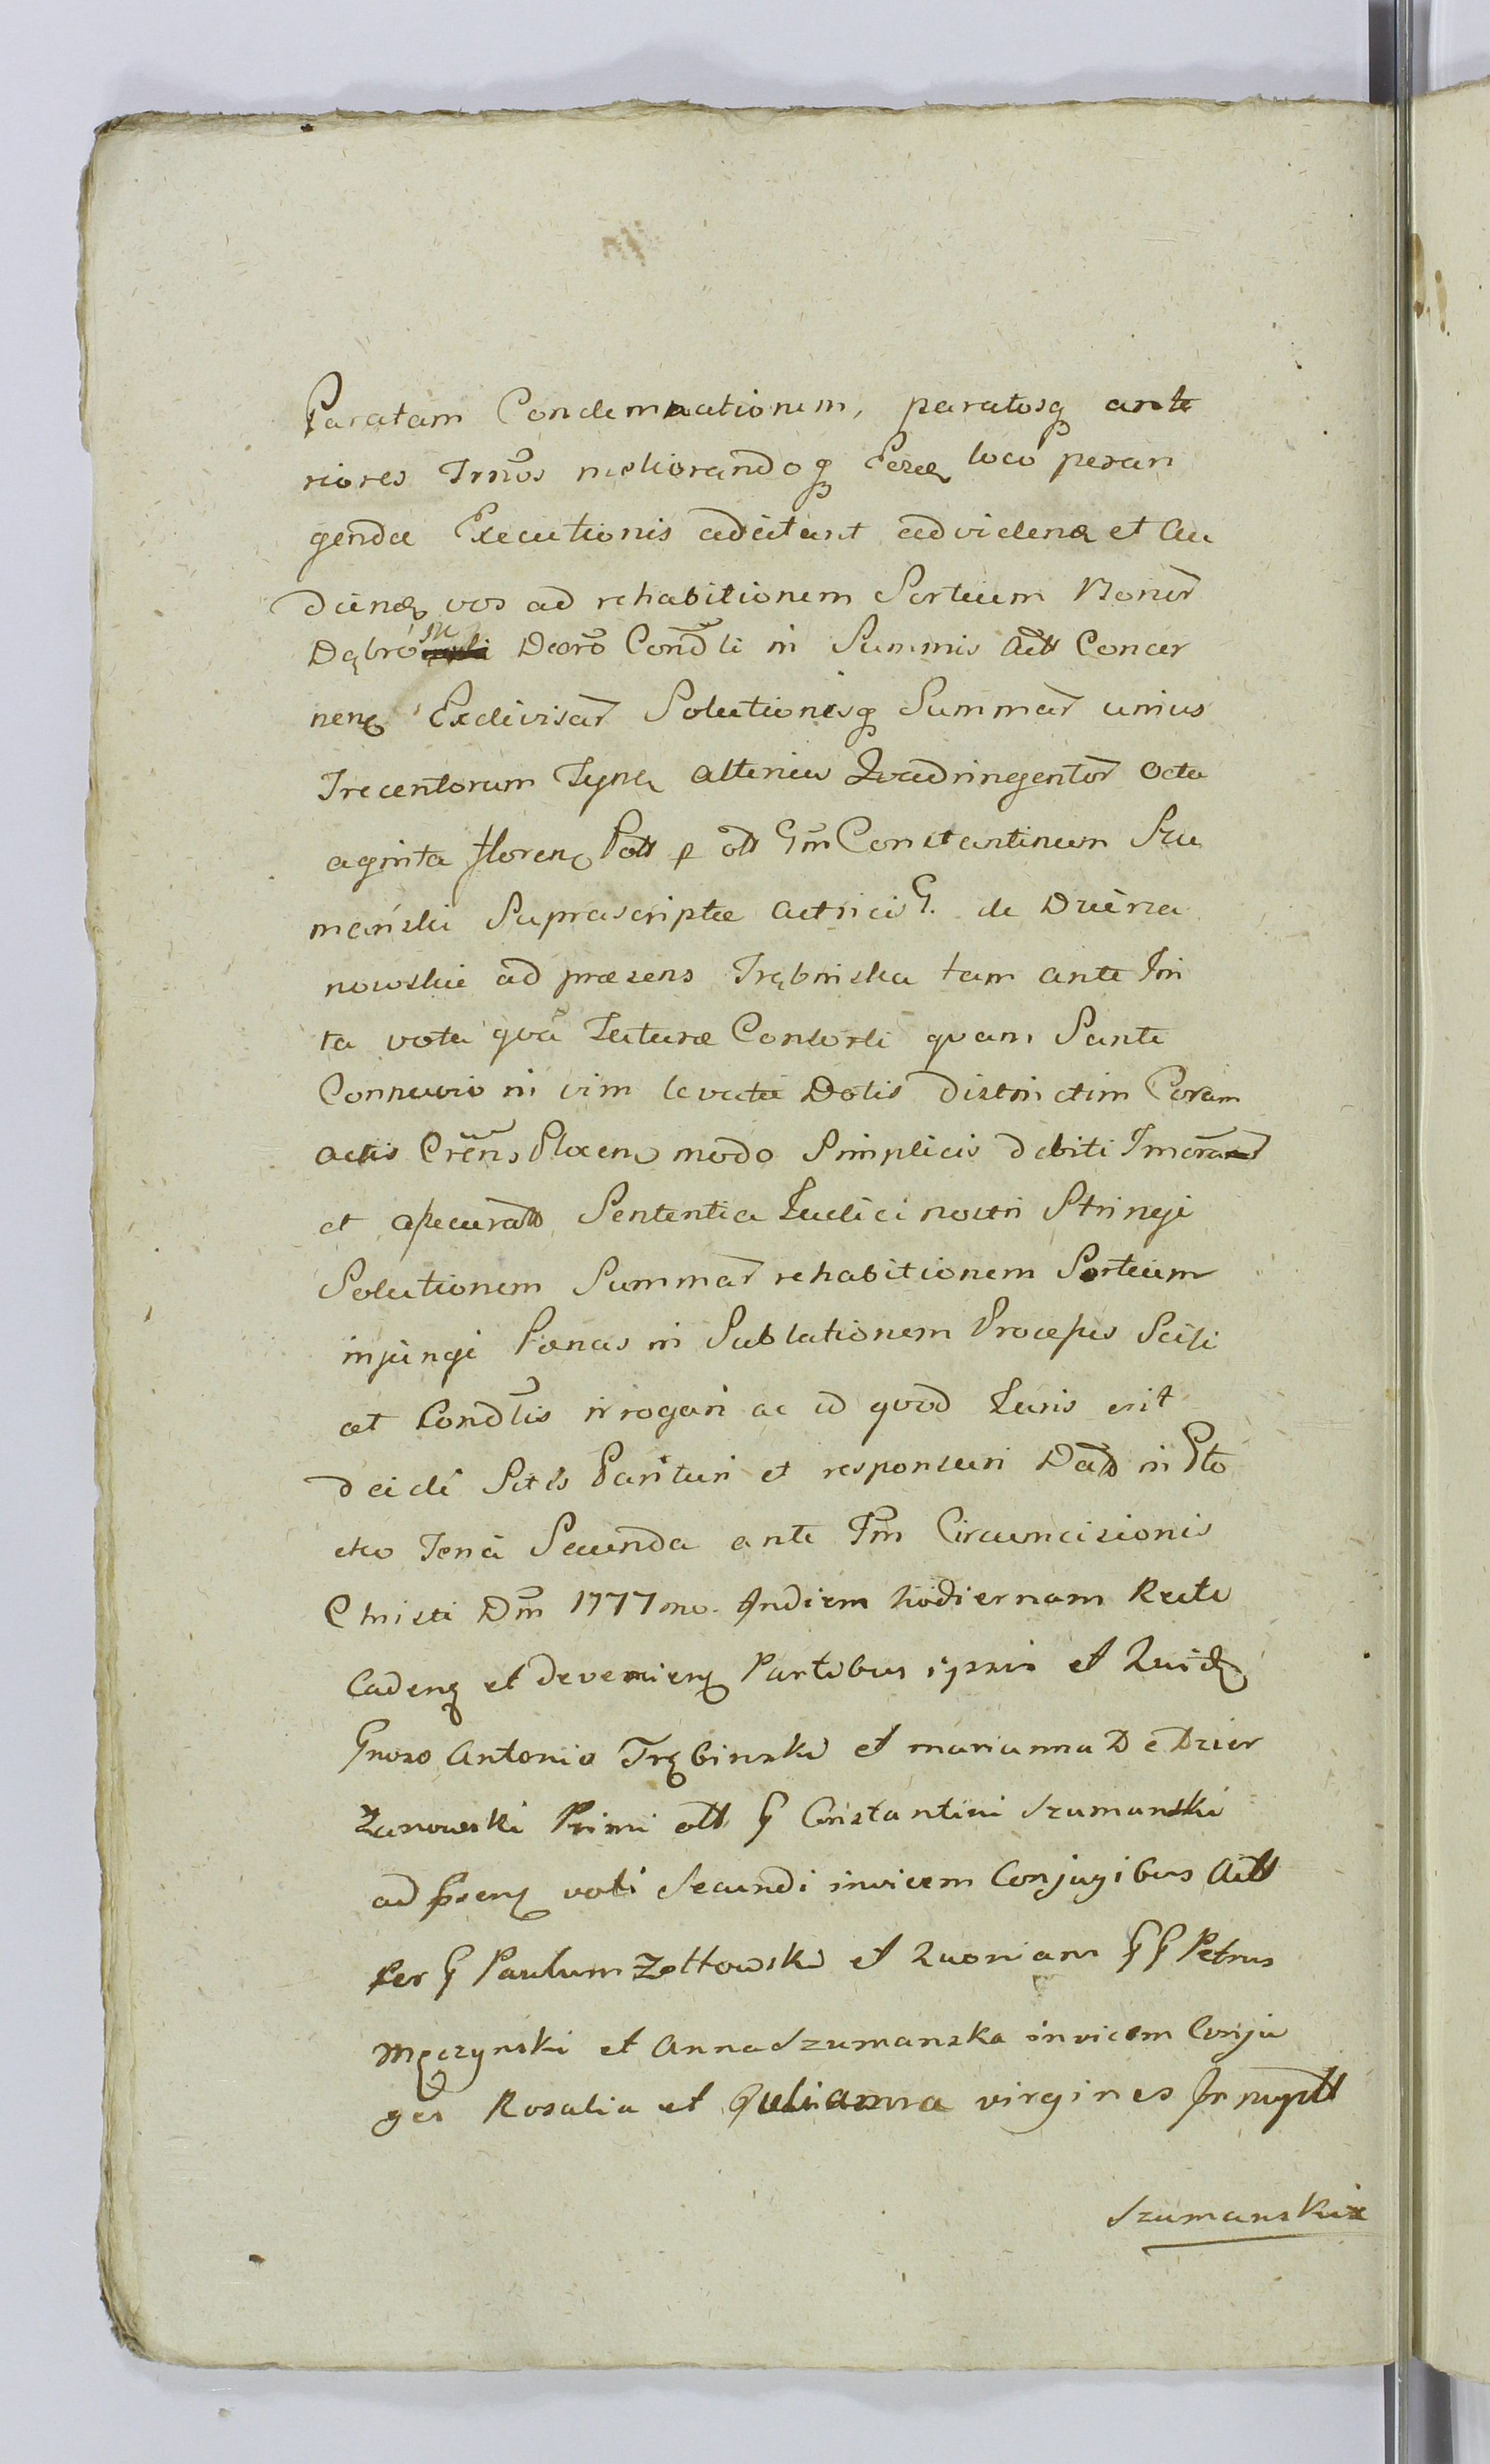 Paratam Condemnationem, paratosq ante
riores Trnos meliorandoq loco peran
gendæ Executionis adcitant ad videnđ et Au
diendę vos ad rehabitionem Sortium Bonor
Dąbró Decro Condti in Summis Actt Concer
nenę Exdivisar Solutionisq Summar unius
Trecentorum Tynf alterius Quadringentor Octu
aginta floren Poll p oll Gm Constantinum Szu
mański Suprascriptæ Actrici G. de Dzierza
nowskie ad præsens Trębinska tam ante In
ita vota qvá futuræ Consorti quam Stante
Connuvio in vim levatæ Dotis distinctim Coram
actis Crens Plocen modo Simplicis debiti
et assecuratt Sententia Iudici nostri Stringi
Solutionem Summar rehabitionem Sortium
injungi Pœnas in Sublationem Processus Scisi
et Condtis irrogari ac id qvod Iuris erit
deidi Sitis Parituri et responsuri Datt in Plo
cko Feria Secunda ante Fm Circumcisionis
Christi Dm 1777mo. In diem hodiernam Recte
Cadenę et devenienę Partibus ipsis et Quidę
Gnoso Antonio Trębinski et marianna De Dzier
Zanowski Primi oll G Constantini Szumanski
ad pseną voti Secundi invicem Conjugibus Actt
Per G Paulum Zołtowski et Quoniam GG Petrus
Męczynski et Anna Szumanska invicem Conju
ges Rosalia et Julianna virgines Innuptt
Szumanskie